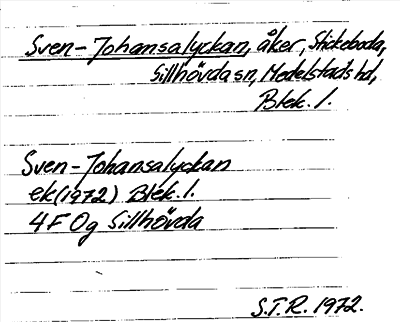 Sven-Johansalyckan, åker, Stickeboda,
Sillhövda sn, Medelstads hd,
Blek. l.
Sven-Johansalyckan
ek(1972) Blek. l.
4F Og Sillhövda
S.T.R. 1972.